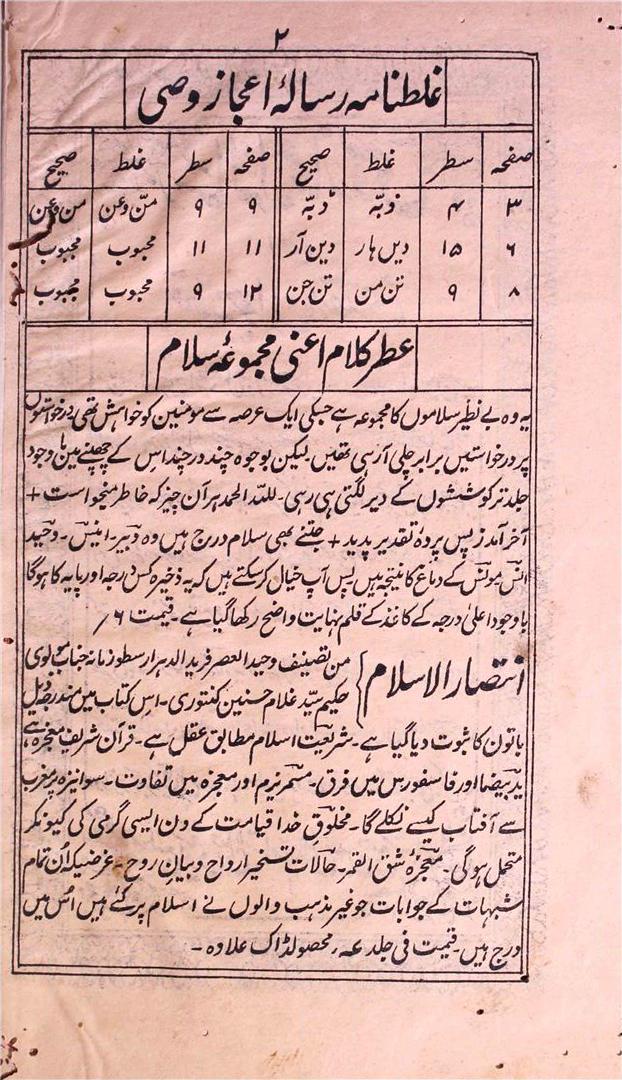 ۲
غلطنامہ رسالۂ اعجاز وصی
صفحہ سطر غلط صحیح صفحہ سطر غلط صحیح
۳ ۴ ذبّہ دبّہ ۹ ۹ منّ وعن من وعن
۶ ۱۵ دیں ہار دین آر ۱۱ ۱۱ محبوب محبوب
۸ ۹ تن من تن جن ۱۲ ۹ محبوب محبوب
عطر کلام اعنی مجموعۂ سلام
یہ وہ بے نظیر سلاموں کا مجموعہ ہے جسکی ایک عرصہ سے مومنین کو خواہش تھی درخواستوں
پر درخواستیں برابر چلی آرہی تھیں۔ لیکن بوجوہ چند در چند اس کے چھپنے میں باوجود
جلد تر کوششوں کے دیر لگتی ہی رہی۔ للہ الحمد ہر آن چیز کہ خاطر میخواست +
آخر آمد ز پس پردۂ تقدیر پدید + جتنے بھی سلام درج ہیں وہ دبیر۔ انیس۔ وحید
انس مونس کے دماغ کا نتیجہ ہیں پس آپ خیال کرسکتے ہیں کہ یہ ذخیرہ کس درجہ اور پایہ کا ہوگا
باوجود اعلیٰ درجہ کے کاغذ کے قلم نہایت واضح رکھا گیا ہے۔ قیمت ۶؍
انتصار الاسلام
من تصنیف وحید العصر فرید الدہر ارسطوزمانہ جناب مولوی
حکیم سیّد غلام حسنین کنتوری۔ اس کتاب میں مندرجہ ذیل
باتون کا ثبوت دیا گیا ہے۔ شریعت اسلام مطابق عقل ہے۔ قرآن شریف معجزہ ہے
ید بیضا اور فاسفورس میں فرق۔ مسمریزم اور معجزہ میں تفاوت۔ سوانیزہ پر مغرب
سے آفتاب کیسے نکلے گا۔ مخلوق خدا قیامت کے دن ایسی گرمی کی کیونکر
متحمل ہوگی۔ معجزۂ شق القمر۔ حالات تسخیر ارواح و بیان روح۔ غرضیکہ اُن تمام
شبہات کے جوابات جو غیر مذہب والوں نے اسلام پر کئے ہیں اُس میں
درج ہیں۔ قیمت فی جلد عہ؍ محصولڈاک علاوہ۔